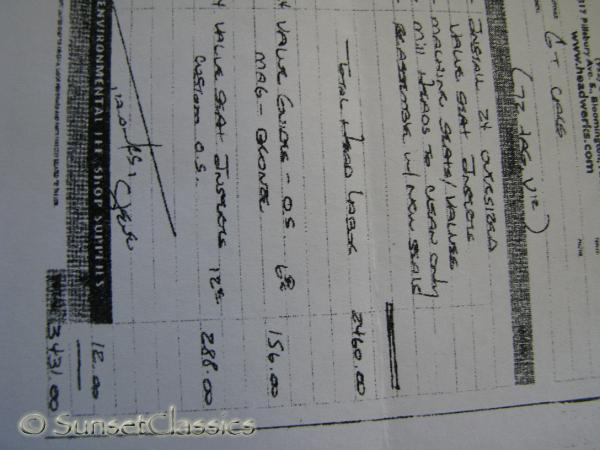 17 Pillsbury Ave. S., Bloomington,
www.headwerks.com
GT CARS
(72 JAG V12)
- INSTALL 24 OVERSIZED
VALVE SEAT INSERTS
- MACHINE SEATS/VALVES
- MILL HEADS TO CLEAN ONLY
- REASSEMBLE W/ NEW SEALS
TOTAL HEAD LABOR 2460.00
VALVE GUIDES - O.S. 156.00
MAG - BRONZE
VALVE SEAT INSERTS 12 288.00
CUSTOM O.S.
ENVIRONMENTAL FEE/SHOP SUPPLIES 12.00
3431.00
© SunsetClassics